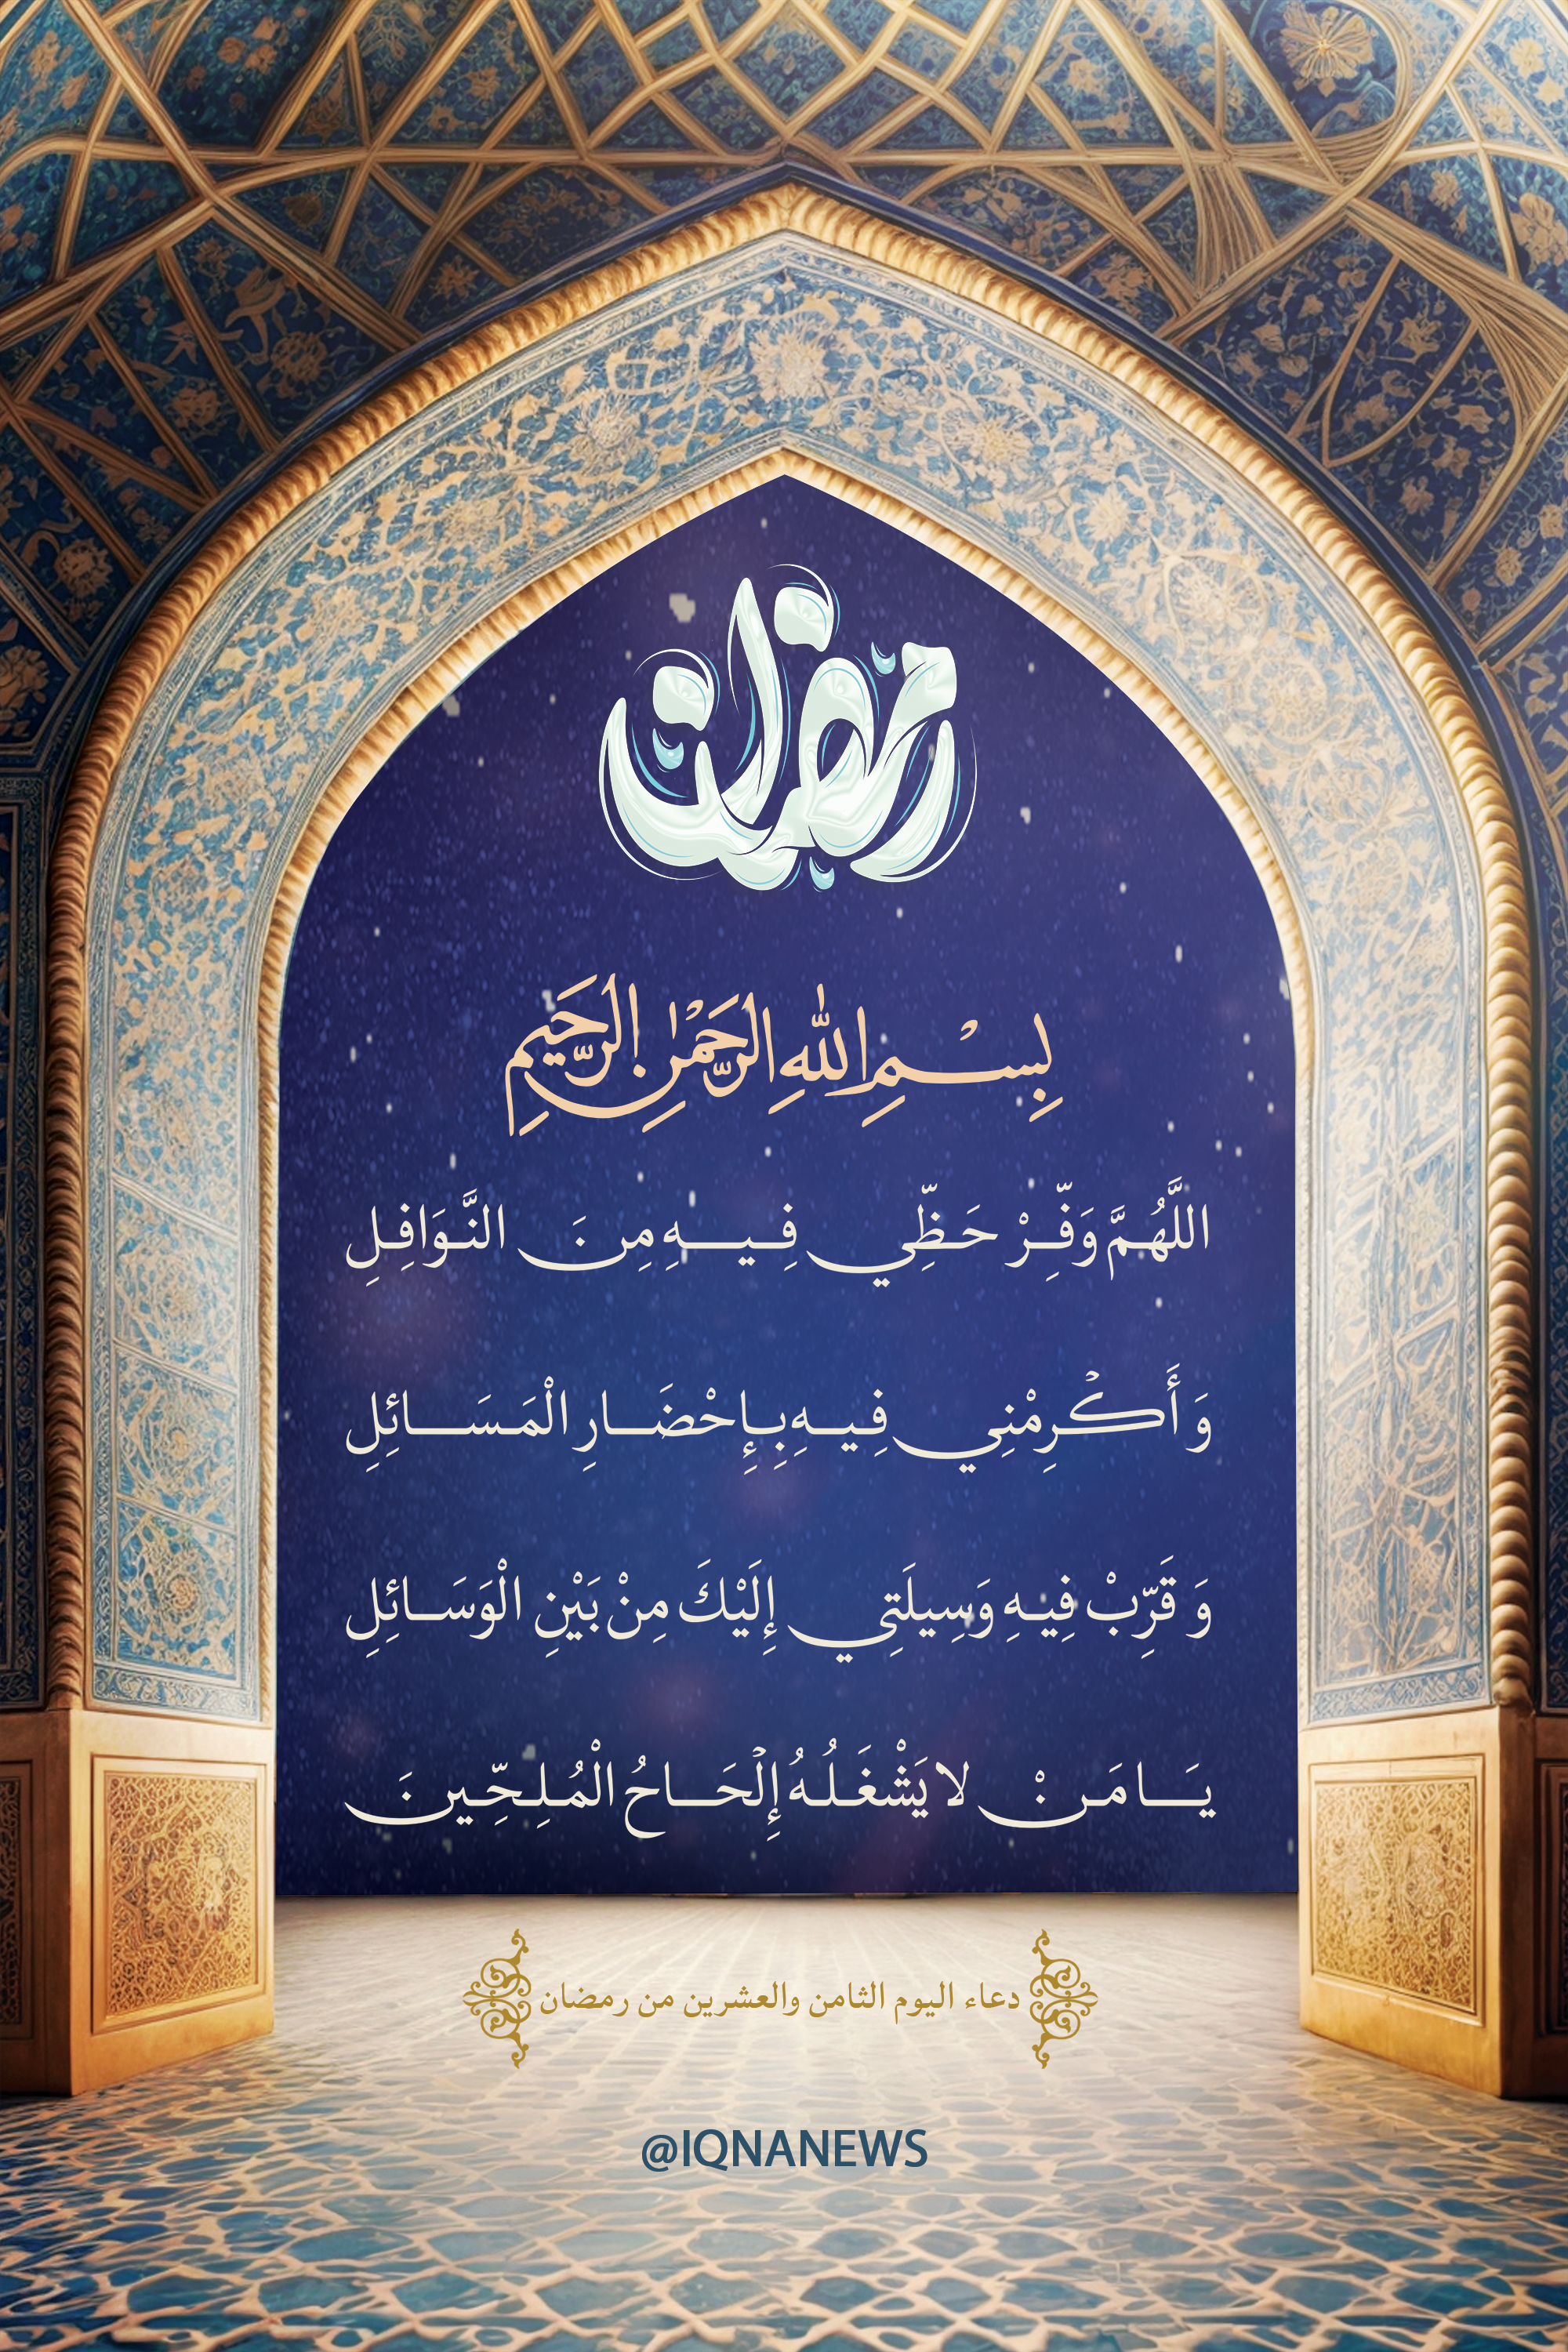 رمضان
بِسْمِ اللّٰهِ الرَّحْمٰنِ الرَّحِيمِ
اللَّهُمَّ وَفِّرْ حَظِّي فِيهِ مِنَ النَّوَافِلِ
وَ أَكْرِمْنِي فِيهِ بِإِحْضَارِ الْمَسَائِلِ
وَ قَرِّبْ فِيهِ وَسِيلَتِي إِلَيْكَ مِنْ بَيْنِ الْوَسَائِلِ
يَا مَنْ لا يَشْغَلُهُ إِلْحَاحُ الْمُلِحِّينَ
دعاء اليوم الثامن والعشرين من رمضان
@IQNANEWS